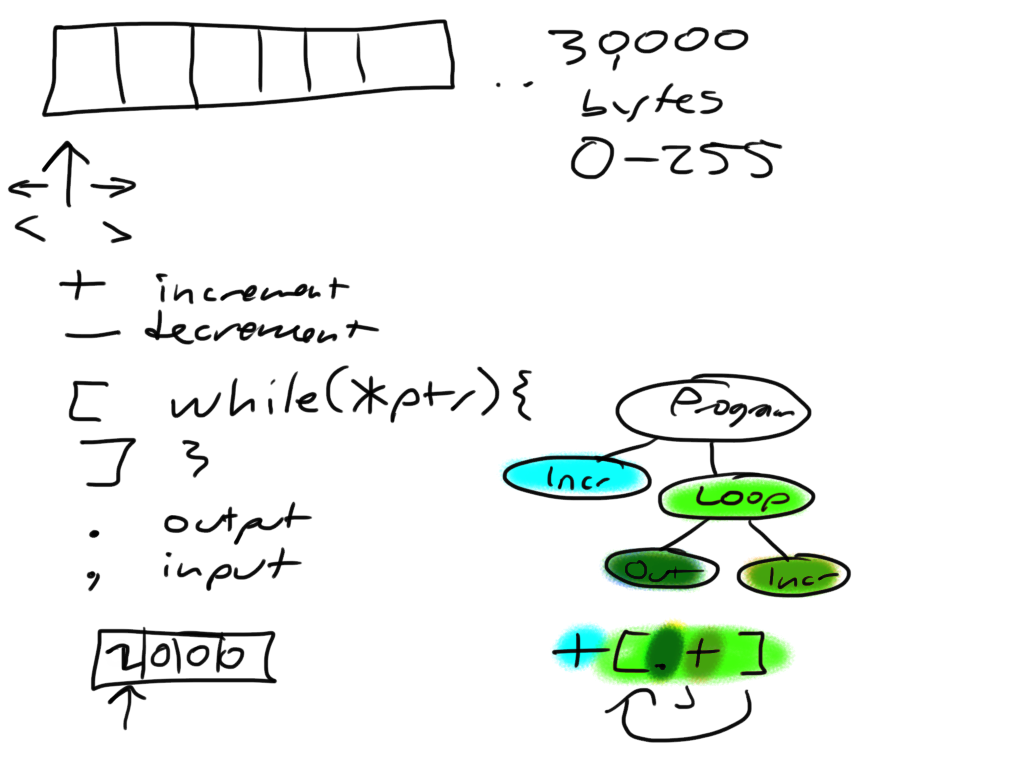 30,000
bytes
0-255
< >
+ increment
- decrement
[ while(*ptr){
] }
. output
, input
Program
Incr
Loop
Out Incr
2 0 0 0
+ [ . + ]